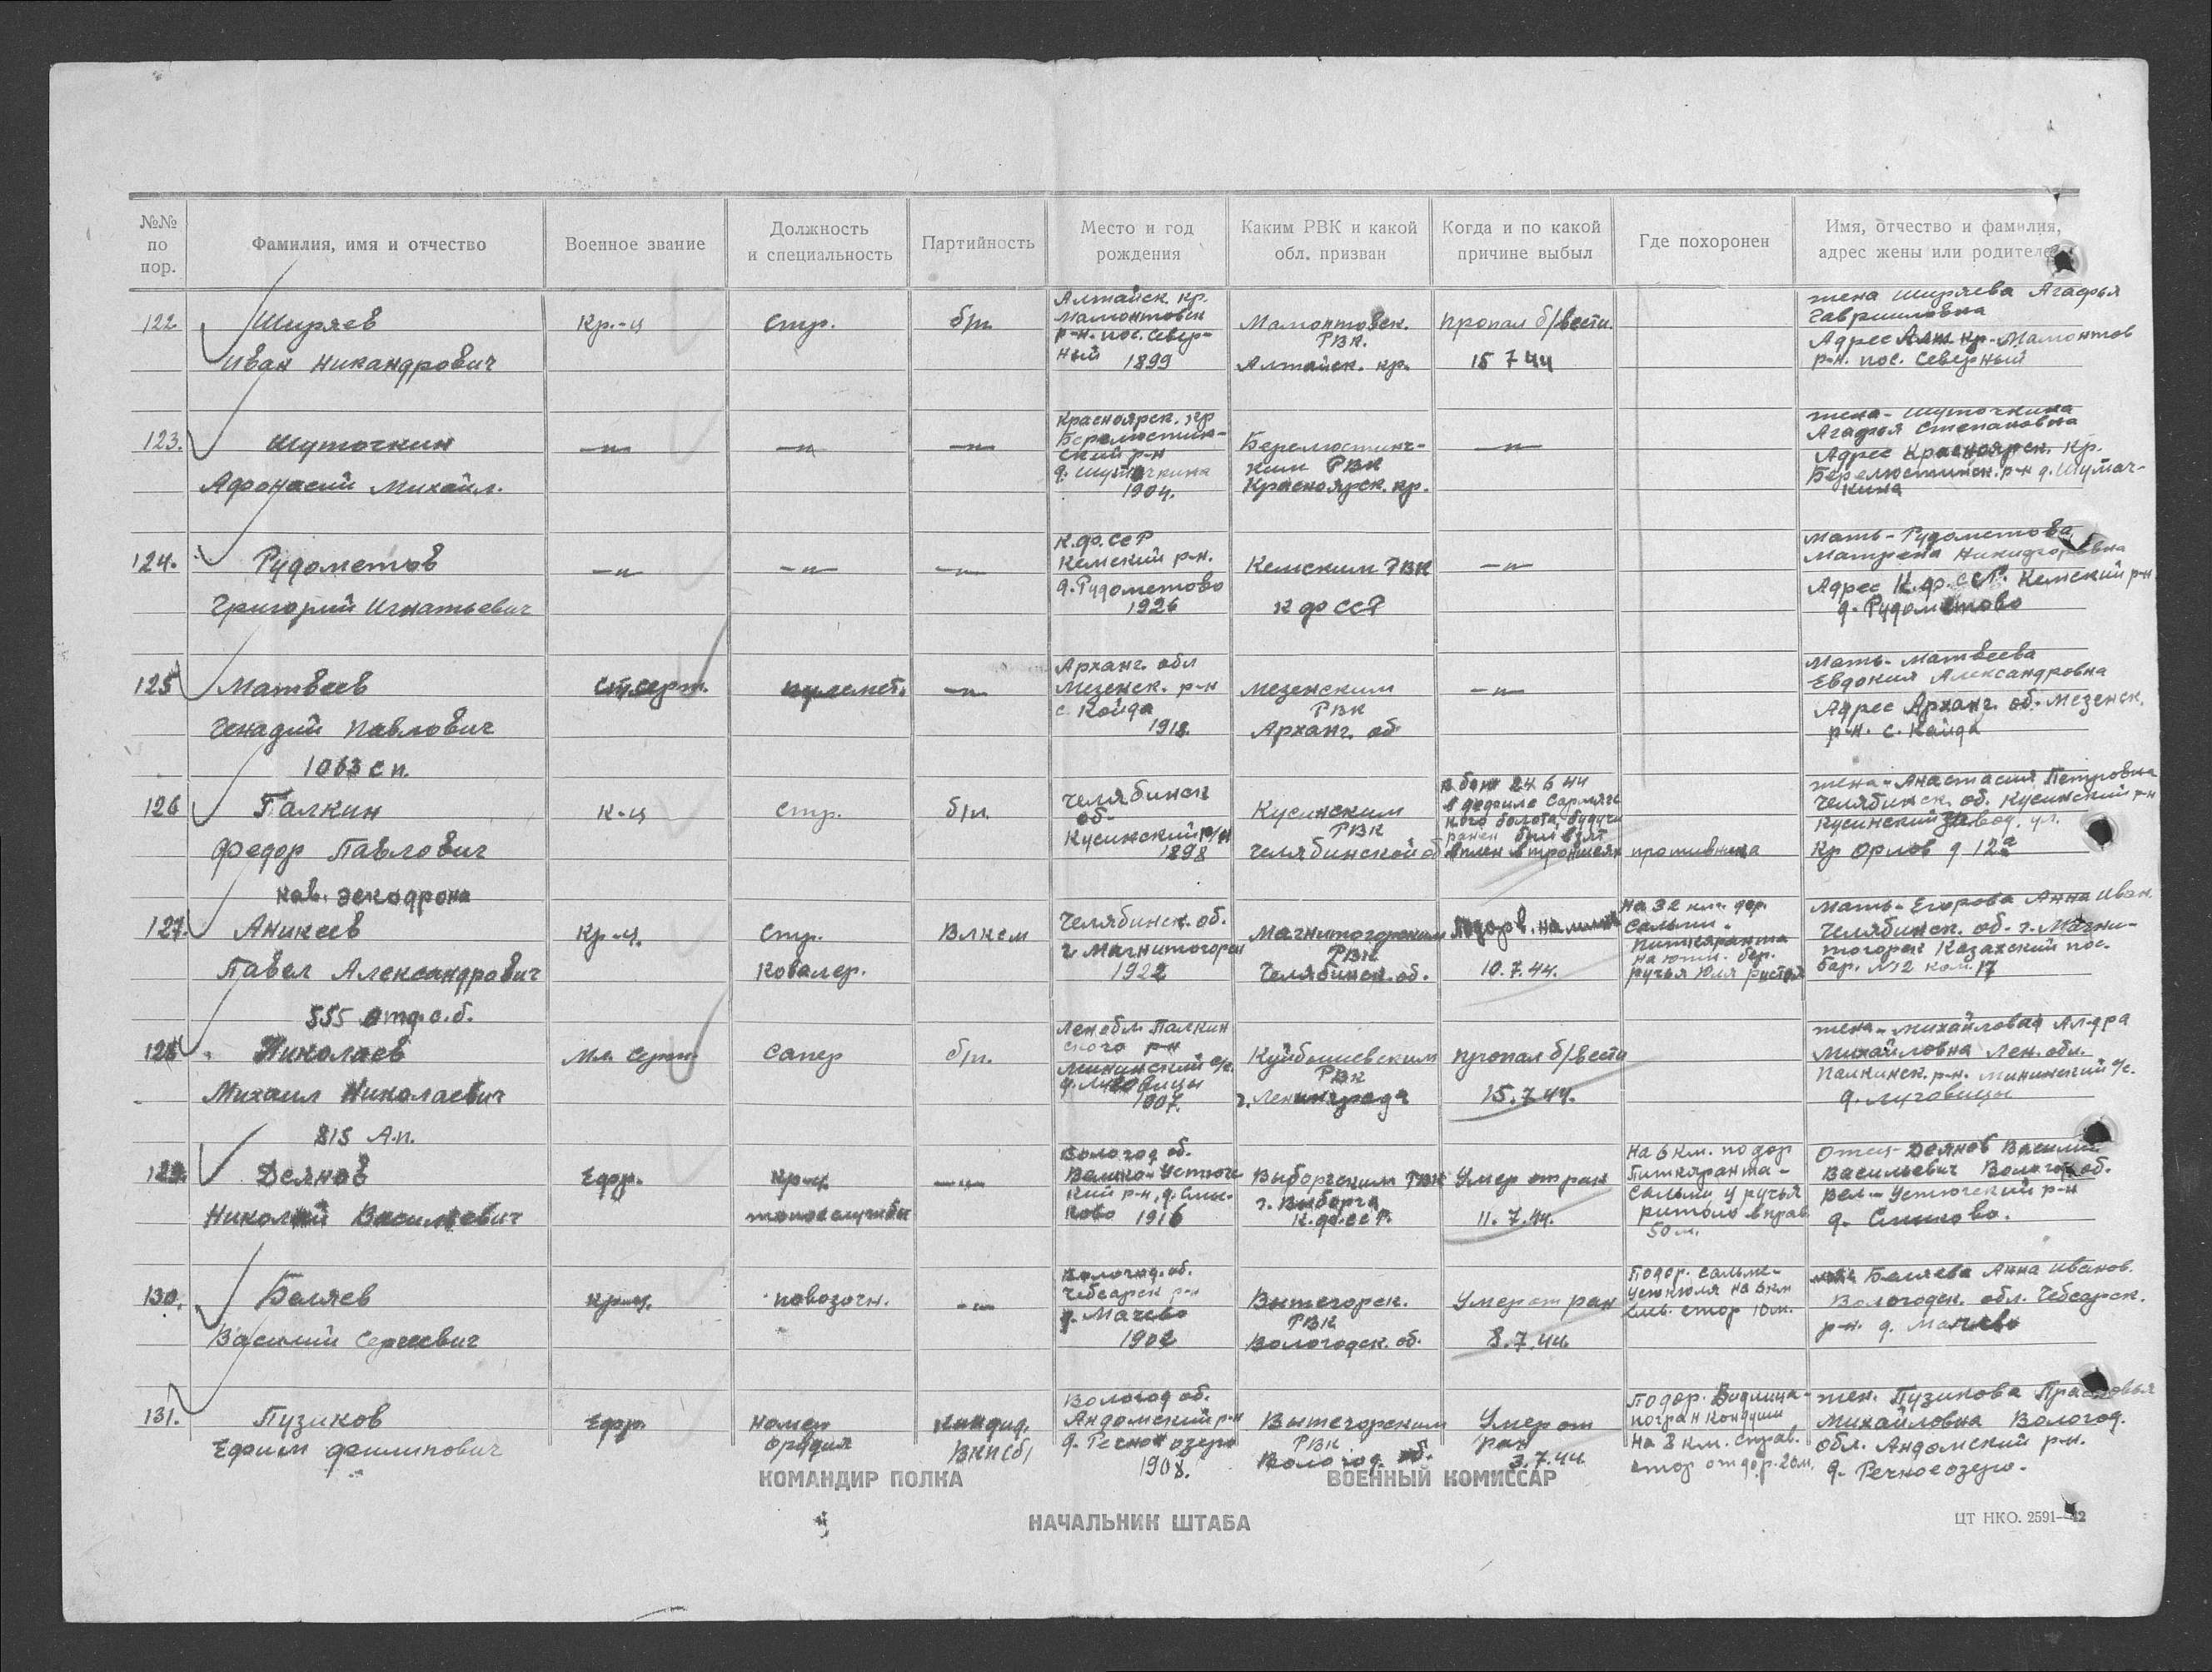 №№ по пор.
Фамилия, имя и отчество
Военное звание
Должность и специальность
Партийность
Место и год рождения
Каким РВК и какой обл. призван
Когда и по какой причине выбыл
Где похоронен
Имя, отчество и фамилия, адрес жены или родителей
122 Ширяев
Иван Никандрович
Кр.-ц
Стр.
б/п.
Алтайск. кр.
Мамонтовск
р-н. пос. Север-
ный 1899
Мамонтовск.
РВК.
Алтайск. кр.
пропал б/вести.
15 7 44
жена Ширяева Агафья
Гавриловна
Адрес Алт кр-Мамонтов
р-н. пос. Северный
123. Шуточкин
Афонасий Михайл.
—"—
—"—
—"—
Красноярск. кр
Берелюстин-
ский р-н
д. Шуточкина
1904.
Берелюстинс-
ким РВК
Красноярск. кр.
—"—
жена - Шуточкина
Агафья Степановна
Адрес Красноярск. кр.
Берелюстинск. р-н д. Шуточ-
кина
124. Рудометов
Григорий Игнатьевич
—"—
—"—
—"—
К.ф.ССР
Кемский р-н.
д. Рудометово
1926
Кемским РВК
К ф ССР
—"—
Мать - Рудометова
Матрена Никифоровна
Адрес К.ф.ССР. Кемский р-н
д. Рудометово
125 Матвеев
Генадий Павлович
Ст.серж.
пулемет.
—"—
Арханг. обл
Мезенск. р-н
с. Койда
1918.
Мезенским
РВК
Арханг. об.
—"—
Мать - Матвеева
Евдокия Александровна
Адрес Арханг. об. Мезенск.
р-н. с. Койда
1063 с п.
126 Галкин
Федор Павлович
К-ц
Стр.
б/п.
Челябинск
об.
Кусинский р/н
1898
Кусинским
РВК
Челябинской об
в бою 24 6 44
в дефиле Сармяг
кого болота, будучи
ранен был взят
в плен в траншеях противника
жена - Анастасия Петровна
Челябинск. об. Кусинский р-н
Кусинский завод, ул.
Кр Орлов д 12а
кав. эскадрона
127. Аникеев
Павел Александрович
Кр-ц.
Стр.
Кавалер.
ВЛКСМ
Челябинск. об.
г. Магнитогорск
1922
Магнитогорским
РВК
Челябинск. об.
Подорв. на мине
10.7.44.
На 32 км. дор.
Сальми -
Питкяранта
на южн. бер.
ручья
Мать - Егорова Анна Иван.
Челябинск. об. г. Магни-
тогорск Казахский пос.
бар. №12 ком. 17
555 отд.с.б.
128 Николаев
Михаил Николаевич
Мл. серж.
Сапер
б/п.
Лен обл. Палкин
ского р-н
Мининский с/с.
д. Луговицы
1907.
Куйбышевским
РВК
г. Ленинграда
пропал б/вести
15.7.44.
жена - Михайловая Ал-дра
Михайловна Лен. обл.
Палкинск. р-н. Мининский с/с.
д. Луговицы
815 А.п.
129. Деянов
Николай Васильевич
Ефр.
кр-ц.
топослужбы
—"—
Вологод об.
Велико-Устюг
кий р-н, д. Смы-
ково 1916
Выборгским РВК
г. Выборга
К.ф.ССР.
Умер от ран
11. 7.44.
На 6 км. по дор
Питкяранта -
Сальми у ручья
вправ
50 м.
Отец - Деянов Василий
Васильевич Вологод об.
Вел - Устюгский р-н
130. Беляев
Василий Сергеевич
кр-ц.
повозочн.
—"—
Вологод. об.
Чебсарск р-н
д. Мачево
1902
Вытегорск.
РВК
Вологодск. об.
Умер от ран
8.7.44
По дор. Сальми -
на 6 км
лев. стор 10 м.
Беляева Анна Иванов.
Вологодск. обл. Чебсарск.
р-н. д. Мачево
131. Пузиков
Ефрим Филиппович
Ефр.
номер
орудия
Кандид.
ВКП(б)
Вологод об.
Андомский р-н
д. Речное озеро
1908.
Вытегорским
РВК
Вологод. об.
Умер от
ран
3.7.44
По дор. Видлица -
погран Кондуши
на 8 км. справ.
стор от дор. 20 м.
жен. Пузикова Прасковья
Михайловна Вологод.
обл. Андомский р-н.
д. Речное озеро.
КОМАНДИР ПОЛКА
ВОЕННЫЙ КОМИССАР
НАЧАЛЬНИК ШТАБА
ЦТ НКО. 2591—42